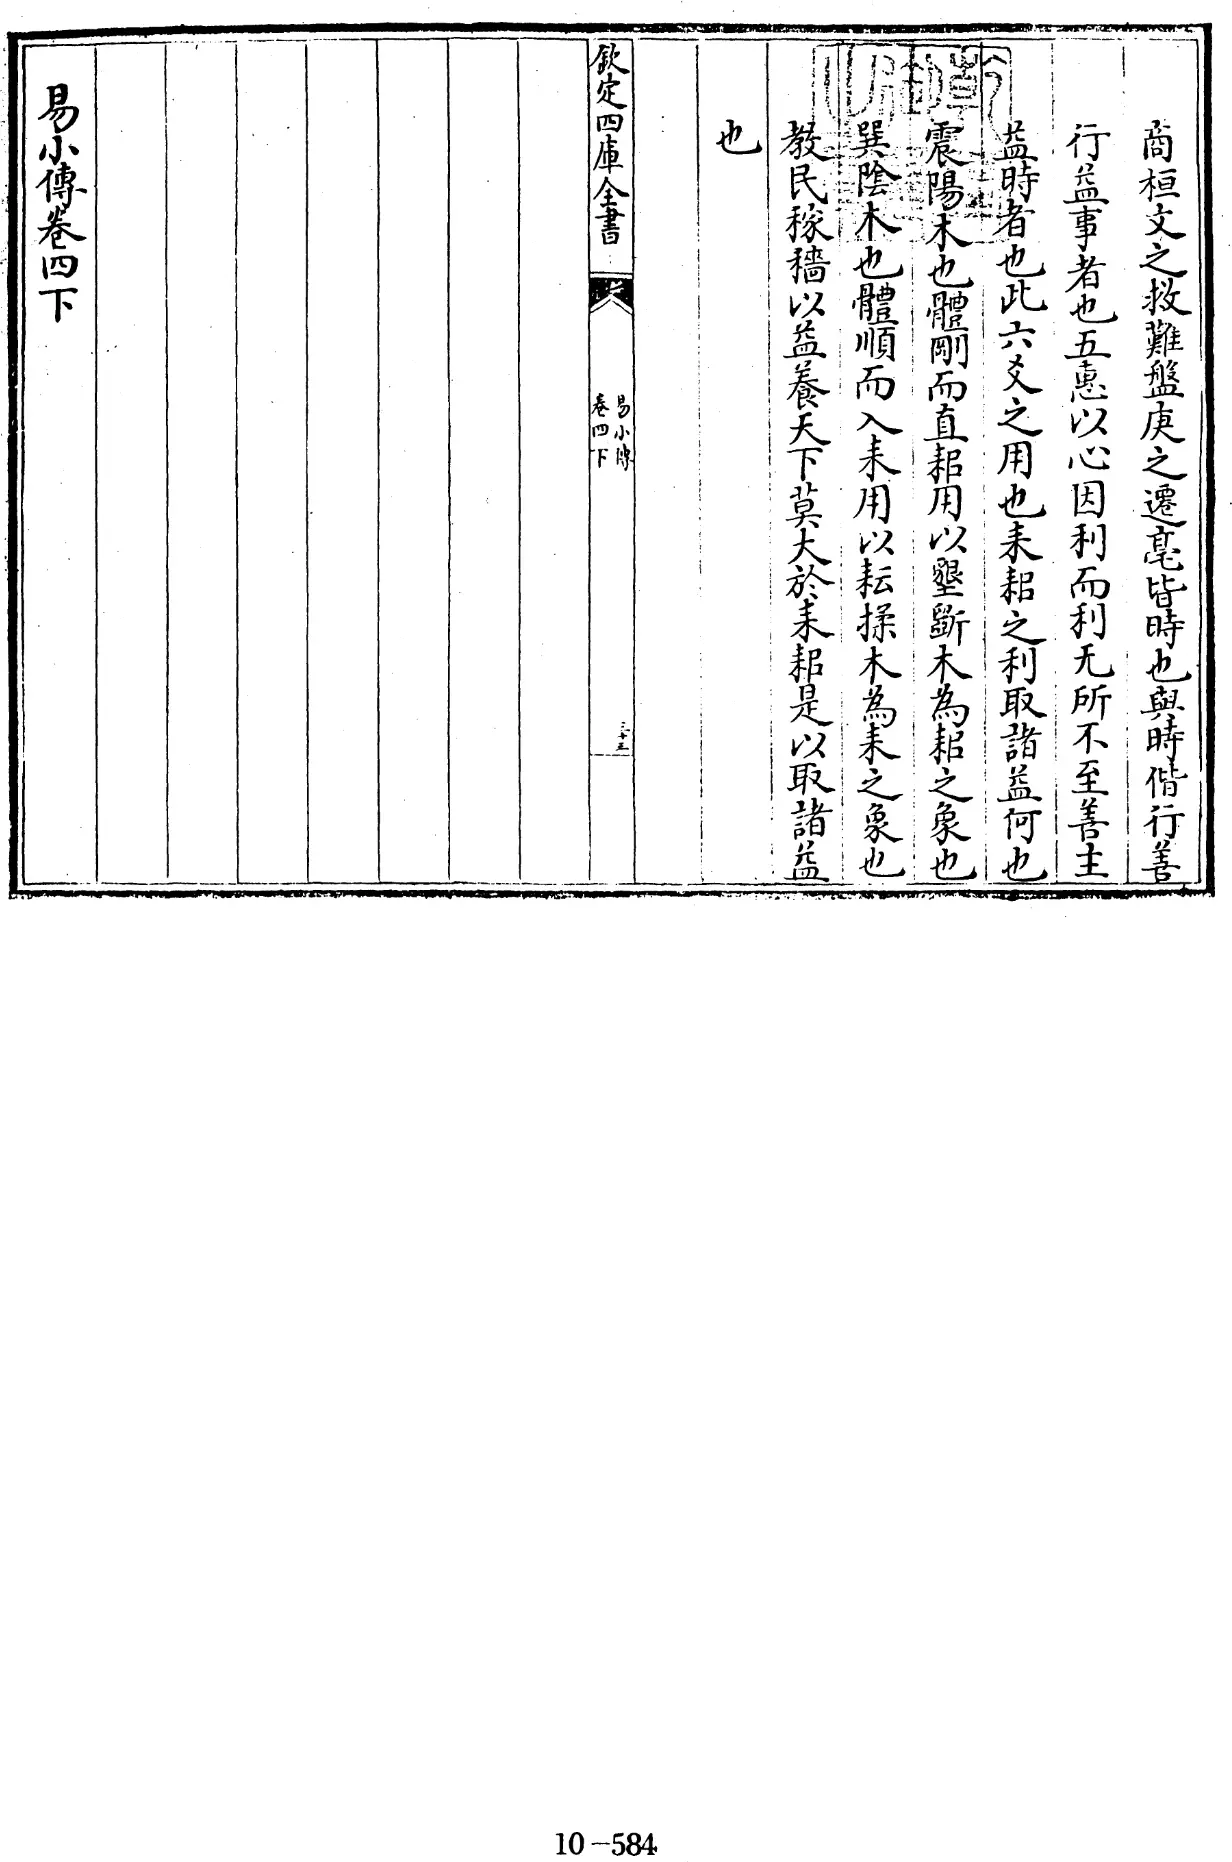 商桓文之救難盤庚之遷亳皆時也與時偕行善
行益事者也五惠以心因利而利无所不至善主
益時者也此六爻之用也耒耜之利取諸益何也
震陽木也體剛而直耜用以墾斵木為耜之象也
巽陰木也體順而入耒用以耘揉木為耒之象也
教民稼穡以益養天下莫大於耒耜是以取諸益
也
欽定四庫全書
易小傳
卷四下
三十五
易小傳卷四下
10-584